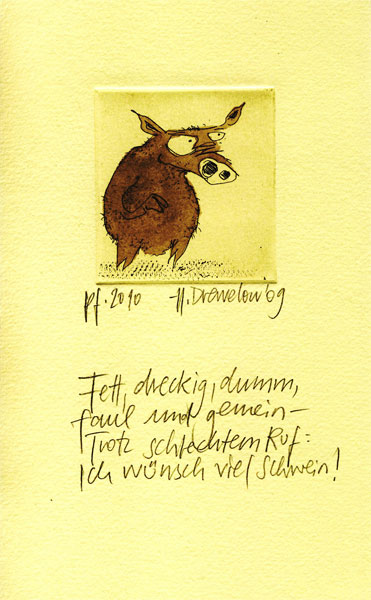 pf. 2010 H. Drewelow 09
Fett, dreckig, dumm,
faul und gemein –
Trotz schlechtem Ruf:
Ich wünsch viel Schwein!